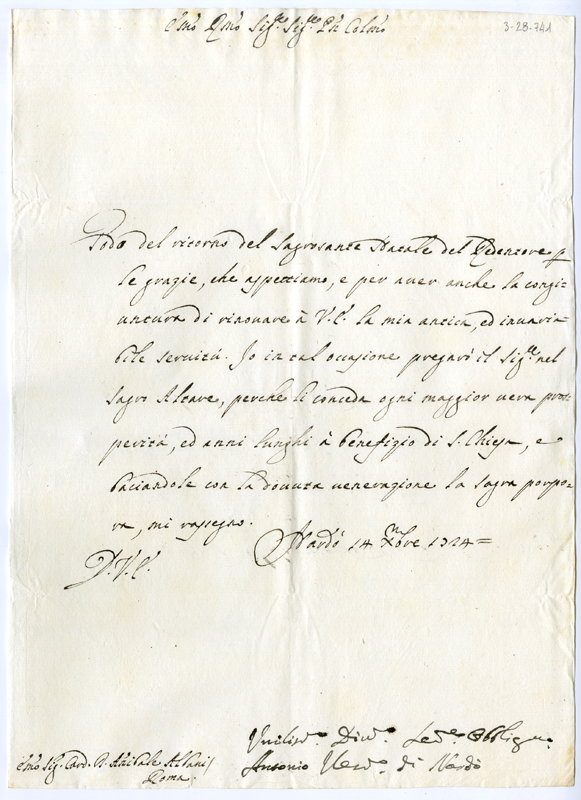 3-28-741
Emō Rmō Sig.re Sig.re Pñ Colmō
Godo del ritorno del Sagrosante Natale del Redentore p
le grazie, che aspettiamo, e per aver anche la congi=
untura di rinovare à V.E. la mia antica, ed invaria=
bile servitù. Io in tal occasione pregarò il Sig.re nel
Sagro Altare, perche li conceda ogni maggior vera pros=
perità, ed anni lunghi à benefizio di S. Chiesa, e
baciandole con la dovuta venerazione la sagra porpo=
ra, mi rassegno.
Nardò 14 Xbre 1724=
D. V. E.
Umiliss.o Div.o Ser.e Obbligm.o
Emō Sig. Card. D. Anibale Albani /
Antonio Vesc.o di Nardò
Roma